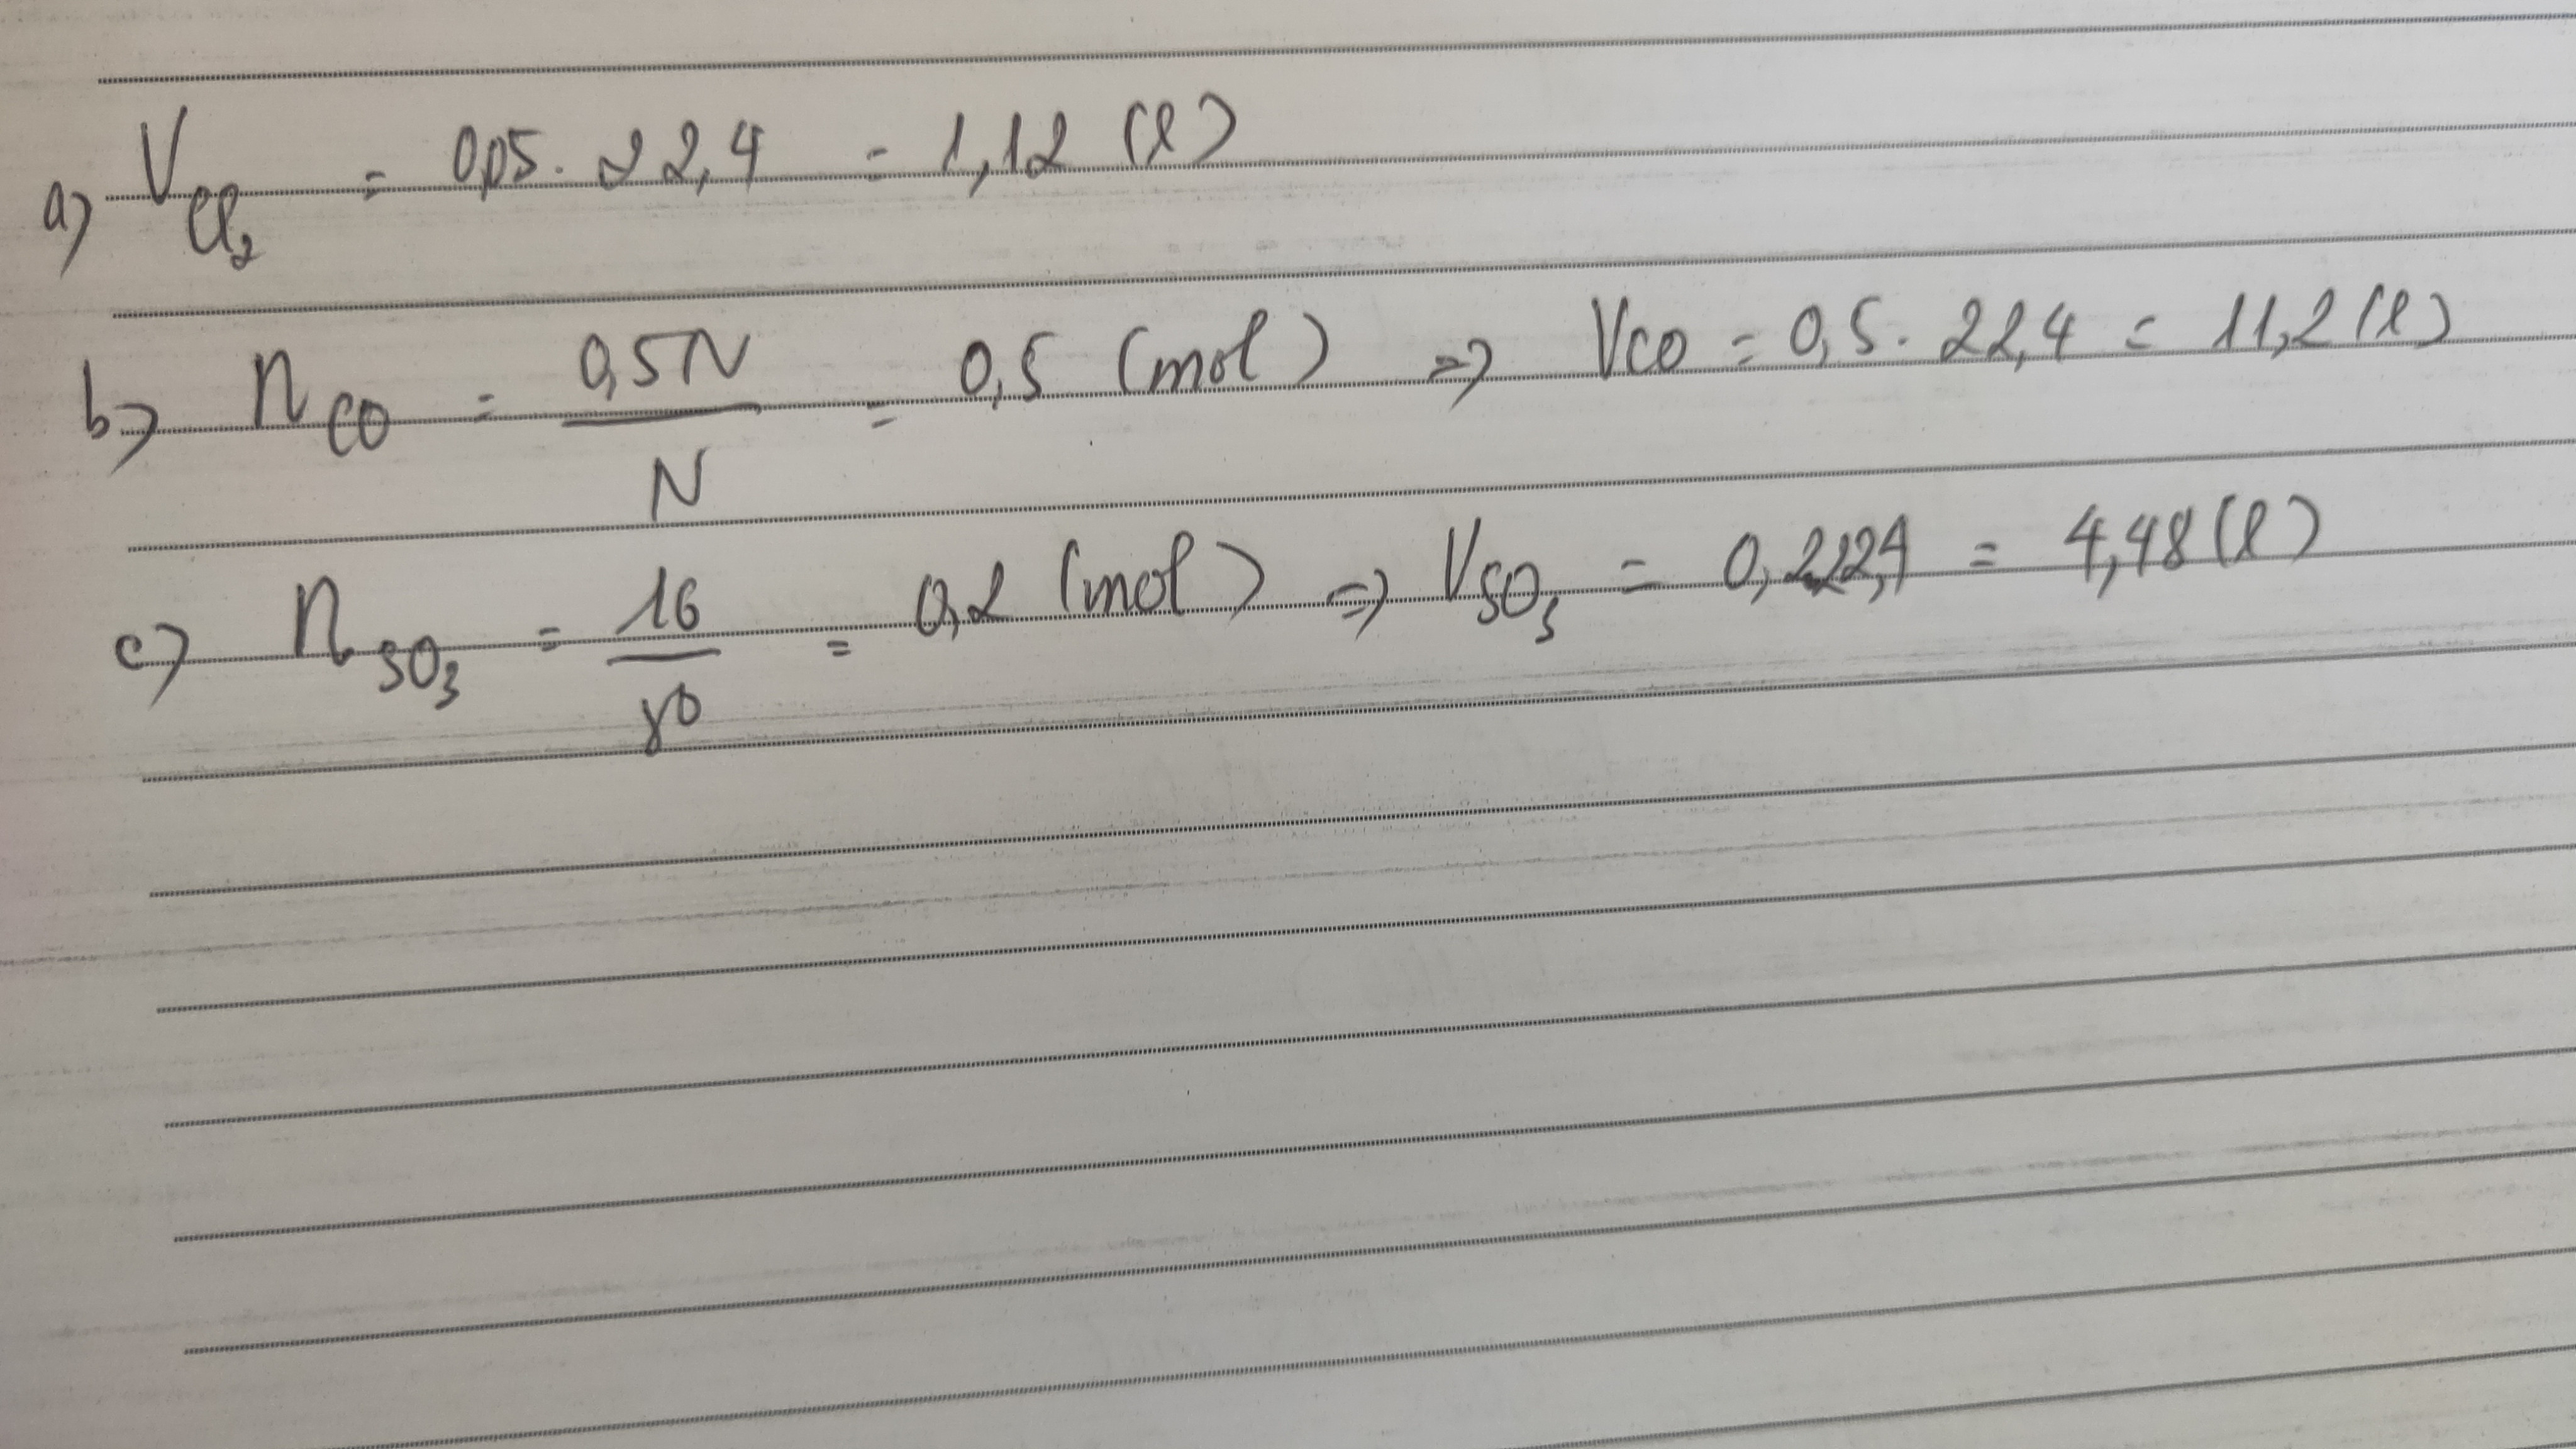 a) V_Cl₂ = 0,05 . 22,4 = 1,12 (l)
b) n_CO = 0,5N / N = 0,5 (mol) => V_CO = 0,5 . 22,4 = 11,2 (l)
c) n_SO₃ = 16 / 80 = 0,2 (mol) => V_SO₃ = 0,2.22,4 = 4,48 (l)